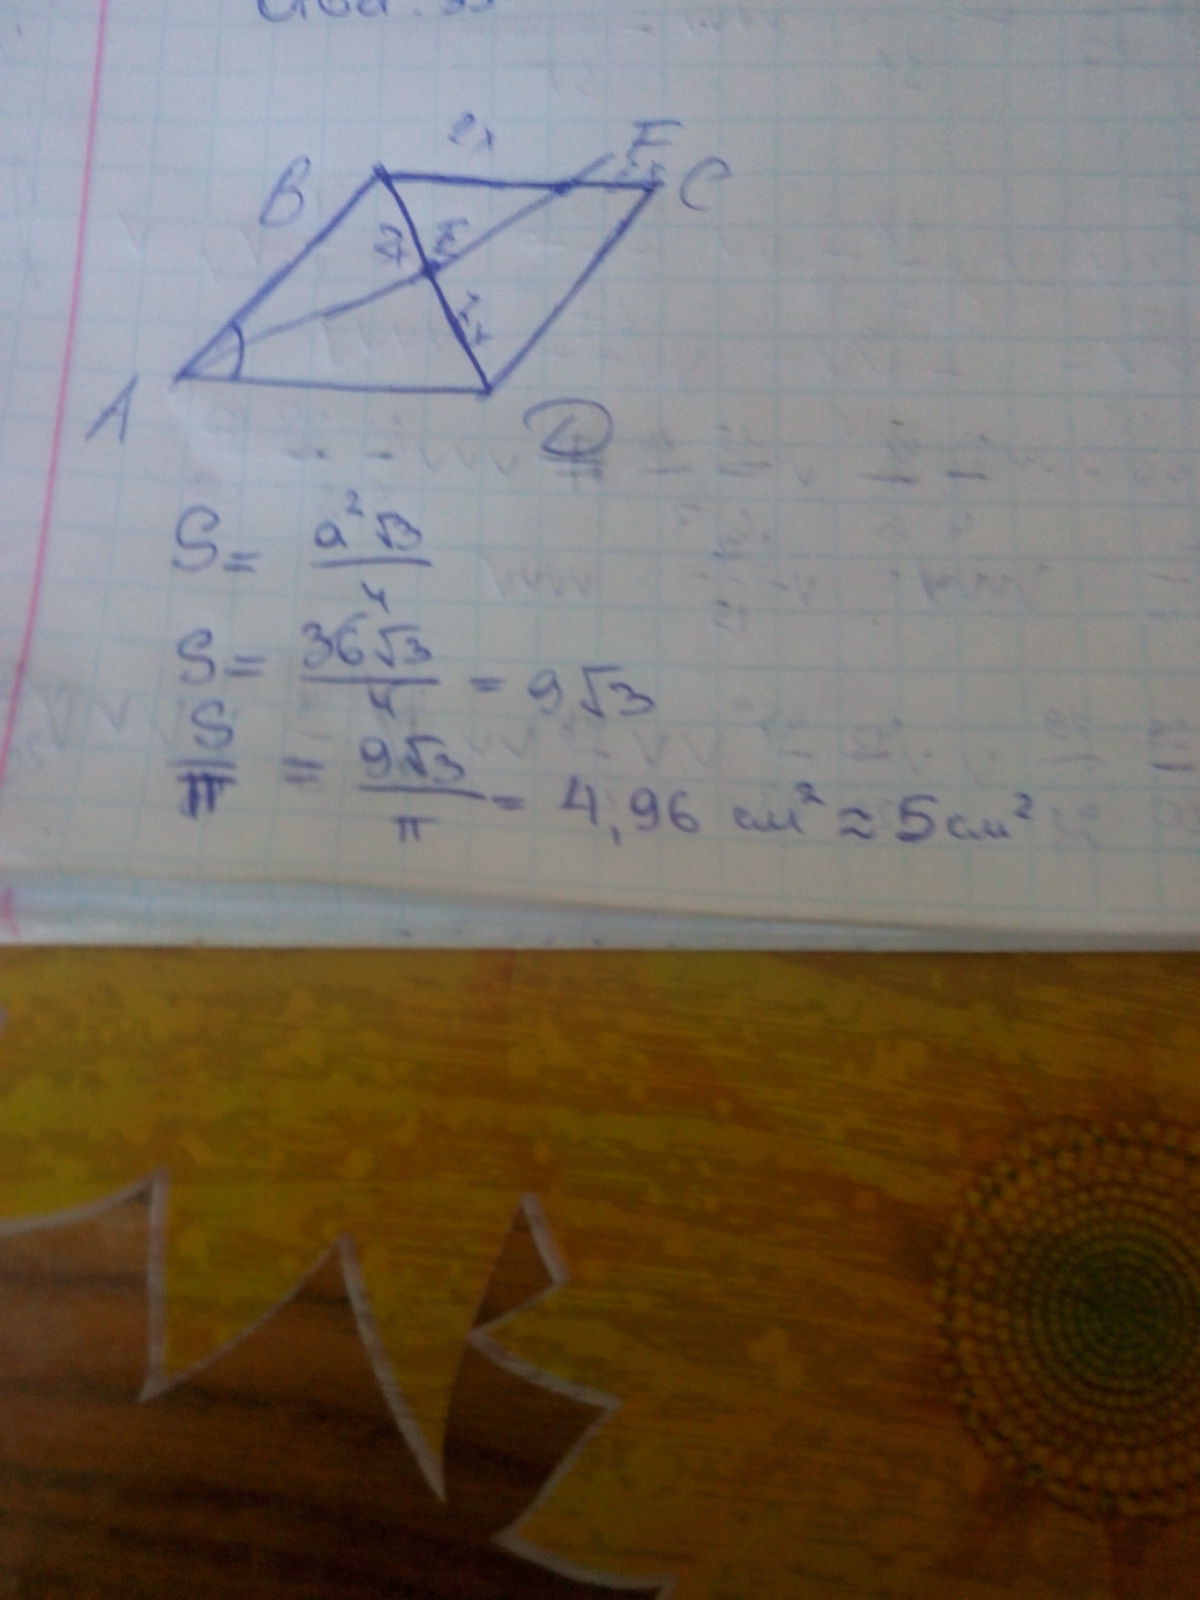 2x
F
B
C
E
A
D
S = a²√3 / 4
S = 36√3 / 4 = 9√3
S / π = 9√3 / π = 4,96 см² ≈ 5 см²